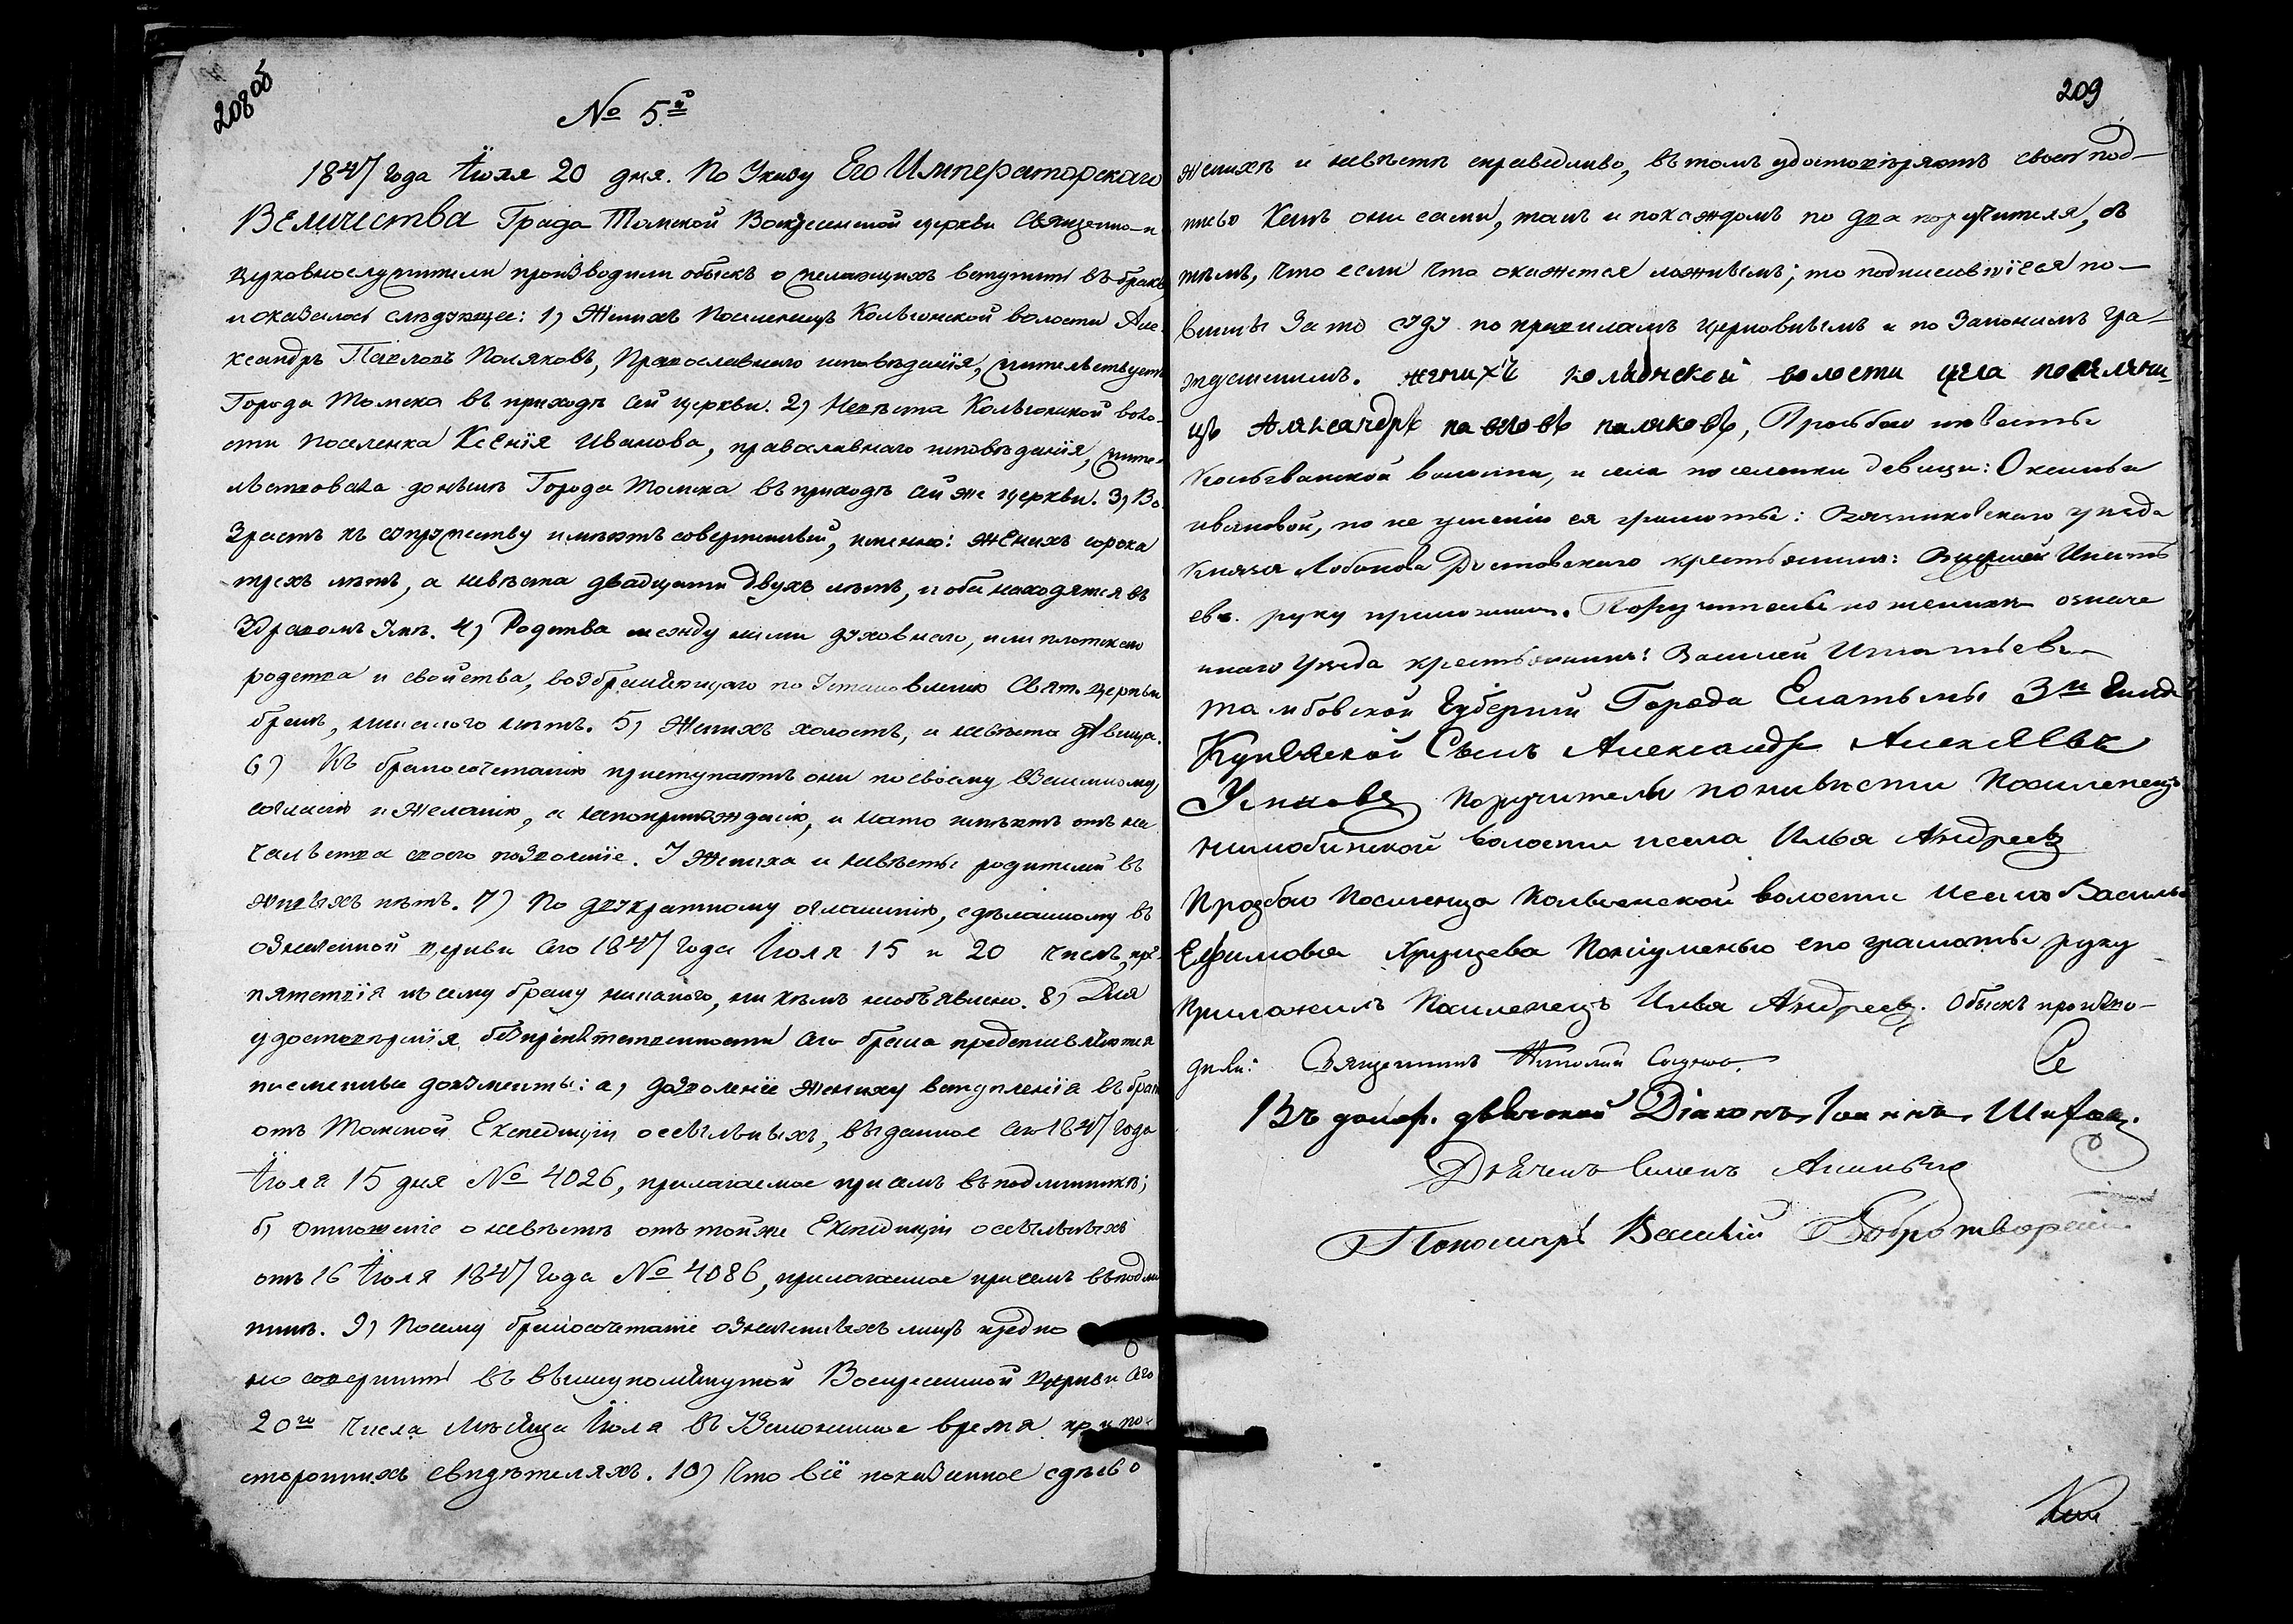 208 об
№ 5й
1847 года Іюля 20 дня. По Указу Его Императорскаго
Величества Града Томской Воскресенской церкви Священно- и
церковнослужители производили обыскъ о желающихъ вступить въ бракъ,
и оказалось слѣдующее: 1) Женихъ Поселенецъ Колыонской волости Але-
ксандръ Павловъ Поляковъ, Православнаго исповѣданія, жительствуетъ
Города Томска въ приходѣ сей церкви. 2) Невѣста Колыонской воло-
сти поселенка Ксенія Иванова, православнаго исповѣданія, житель-
льствовала донынѣ Города Томска въ приходѣ сей же церкви. 3) Во-
зрастъ къ супружеству имѣютъ совершенный, именно: женихъ сорока
трехъ лѣтъ, а невѣста двадцати двухъ лѣтъ, и оба находятся въ
здравомъ умѣ. 4) Родства между ними духовнаго, или плотскаго
родства и свойства, возбраняющаго по установленію Свят. церкви
бракъ, никакого нѣтъ. 5) Женихъ холостъ, а невѣста дѣвица.
6) Къ бракосочетанію приступаютъ они по своему взаимному
согласію и желанію, а не по принужденію, и на то имѣютъ отъ на-
чальства своего позволеніе. У жениха и невѣсты родителей въ
живыхъ нѣтъ. 7) По двукратному оглашенію, сдѣланному въ
означенной церкви сего 1847 года Іюля 15 и 20 числъ, пре-
пятствія къ сему браку никакого, ни кѣмъ не объявлено. 8) Для
удостовѣренія безпрепятственности сего брака представляются
писменные документы: а) дозволеніе жениху вступленія въ бракъ
отъ Томской Експедиціи о ссыльныхъ, выданное сего 1847 года
Іюля 15 дня № 4026, прилагаемое при семъ въ подлинникѣ;
б) отношеніе о невѣстѣ отъ той же Експедиціи о ссыльныхъ
отъ 16 Іюля 1847 года № 4086, прилагаемое при семъ въ подли-
нникѣ. 9) Посему бракосочетаніе означенныхъ лицъ предпо
но совершить въ вышеупомянутой Воскресенской церкви сего
20го числа мѣсяца Іюля въ узаконенное время при по-
стороннихъ свидѣтеляхъ. 10) Что всё показанное здѣсь о
209
женихѣ и невѣстѣ справедливо, въ томъ удостовѣряютъ своею под-
писью какъ они сами, такъ и по каждомъ по два поручителя, съ
тѣмъ, что если что окажется ложнымъ; то подписавшіеся по-
винны за то суду по правиламъ церковнымъ и по законамъ гра-
жданскимъ. женихъ колионской волости села посиляни-
цъ Аляксандръ павловъ паляковъ, Прозбою невѣсты
волости, и села поселенки девицы: Оксиньи
ивановой, по не умению ея грамоте: Вязниковскаго уезда
Князя Лобонова Ростовскаго крестьянинъ: Василей Игнать
евъ. руку приложилъ. Поручители по женихе означе
ннаго уезда крестьянинъ: Василей Игнатьевъ
тамбовской Губернии Города Елатьмы 3й Гилд
Купеческой Сынъ Александръ Алексѣевъ
поручители по нивѣсти Посиленецъ
волости исела Илья Андреевъ
Прозбою Посиленца волости исела Василья
Ефимова Хрущева Понеуменью его грамоты руку
Приложилъ Посиленецъ Илья Андреевъ. Обыскъ произво-
дили: Священникъ
Въ долж. дьяческой Діаконъ Іоаннъ
Дьячекъ
Пономарь Василій Добротворскій